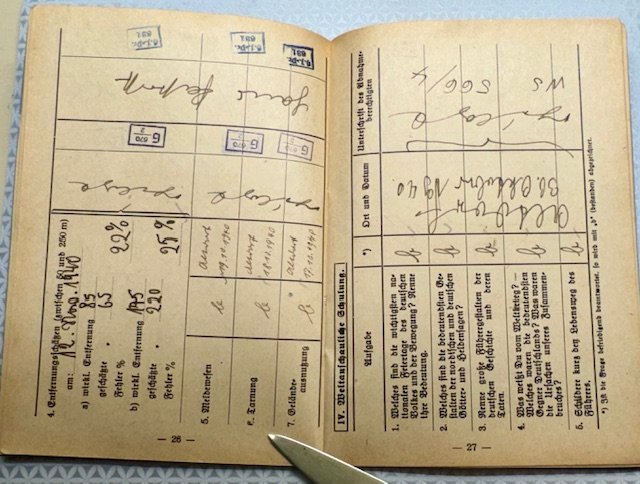 4. Entfernungsschätzen (zwischen 50 und 250 m)
am: 12. Nov. 1940
a) wirkl. Entfernung 85
geschätzte " 65
Fehler % 22%
b) wirkl. Entfernung 175
geschätzte " 220
Fehler % 25%
5. Meldewesen b 19.11.1940
6. Tarnung b 18.11.1940
7. Gelände-
ausnutzung b 17.11.1940
G
670
2
G
670
2
G
H.J.-Pr.
691
H.J.-Pr.
691
H.J.-Pr.
691
— 26 —
IV. Weltanschauliche Schulung.
Aufgabe *) Ort und Datum Unterschrift des Abnahme-
berechtigten
1. Welches sind die wichtigsten na-
tionalen Feiertage des deutschen
Volkes und der Bewegung? Nenne
ihre Bedeutung.
2. Welches sind die bedeutendsten Ge-
stalten der nordischen und deutschen
Götter- und Heldensagen?
3. Nenne große Führergestalten der
deutschen Geschichte und deren
Taten.
4. Was weißt Du vom Weltkrieg? —
Welches waren die bedeutendsten
Gegner Deutschlands? Was waren
die Ursachen unseres Zusammen-
bruches?
5. Schildere kurz den Lebensweg des
Führers.
30. Oktober 1940.
566/4
WS
*) Ist die Frage befriedigend beantwortet, so wird mit „b" (bestanden) abgezeichnet.
— 27 —